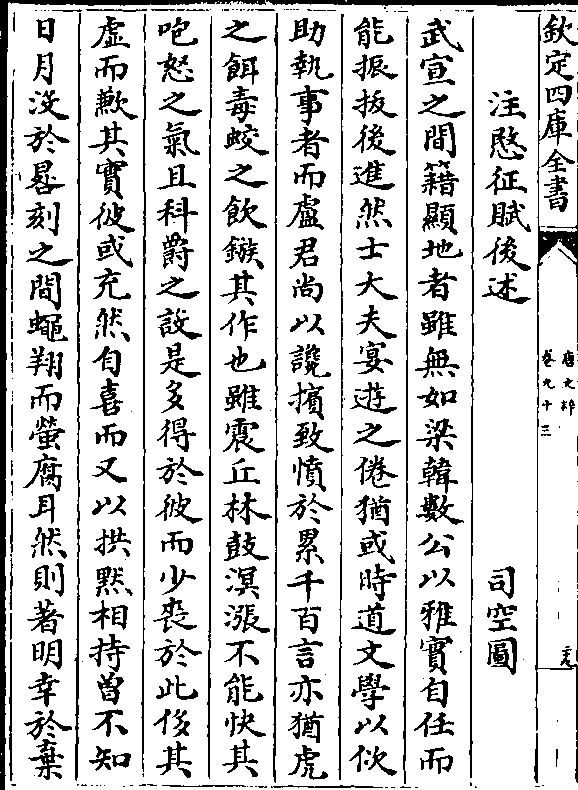 欽定四庫全書
唐文粹
卷九十三
注愍征賦後述
司空圖
武宣之間籍顯地者雖無如梁韓數公以雅實自任而
能振拔後進然士大夫宴遊之倦猶或時道文學以佽
助執事者而盧君尚以讒擯致憤於累千百言亦猶虎
之餌毒蛟之飲鏃其作也雖震丘林鼓溟漲不能快其
咆怒之氣且科爵之設是多得於彼而少喪於此侈其
虛而歉其實彼或充然自喜而又以拱默相持曾不知
日月沒於晷刻之間蠅翔而螢腐耳然則著明幸於棄